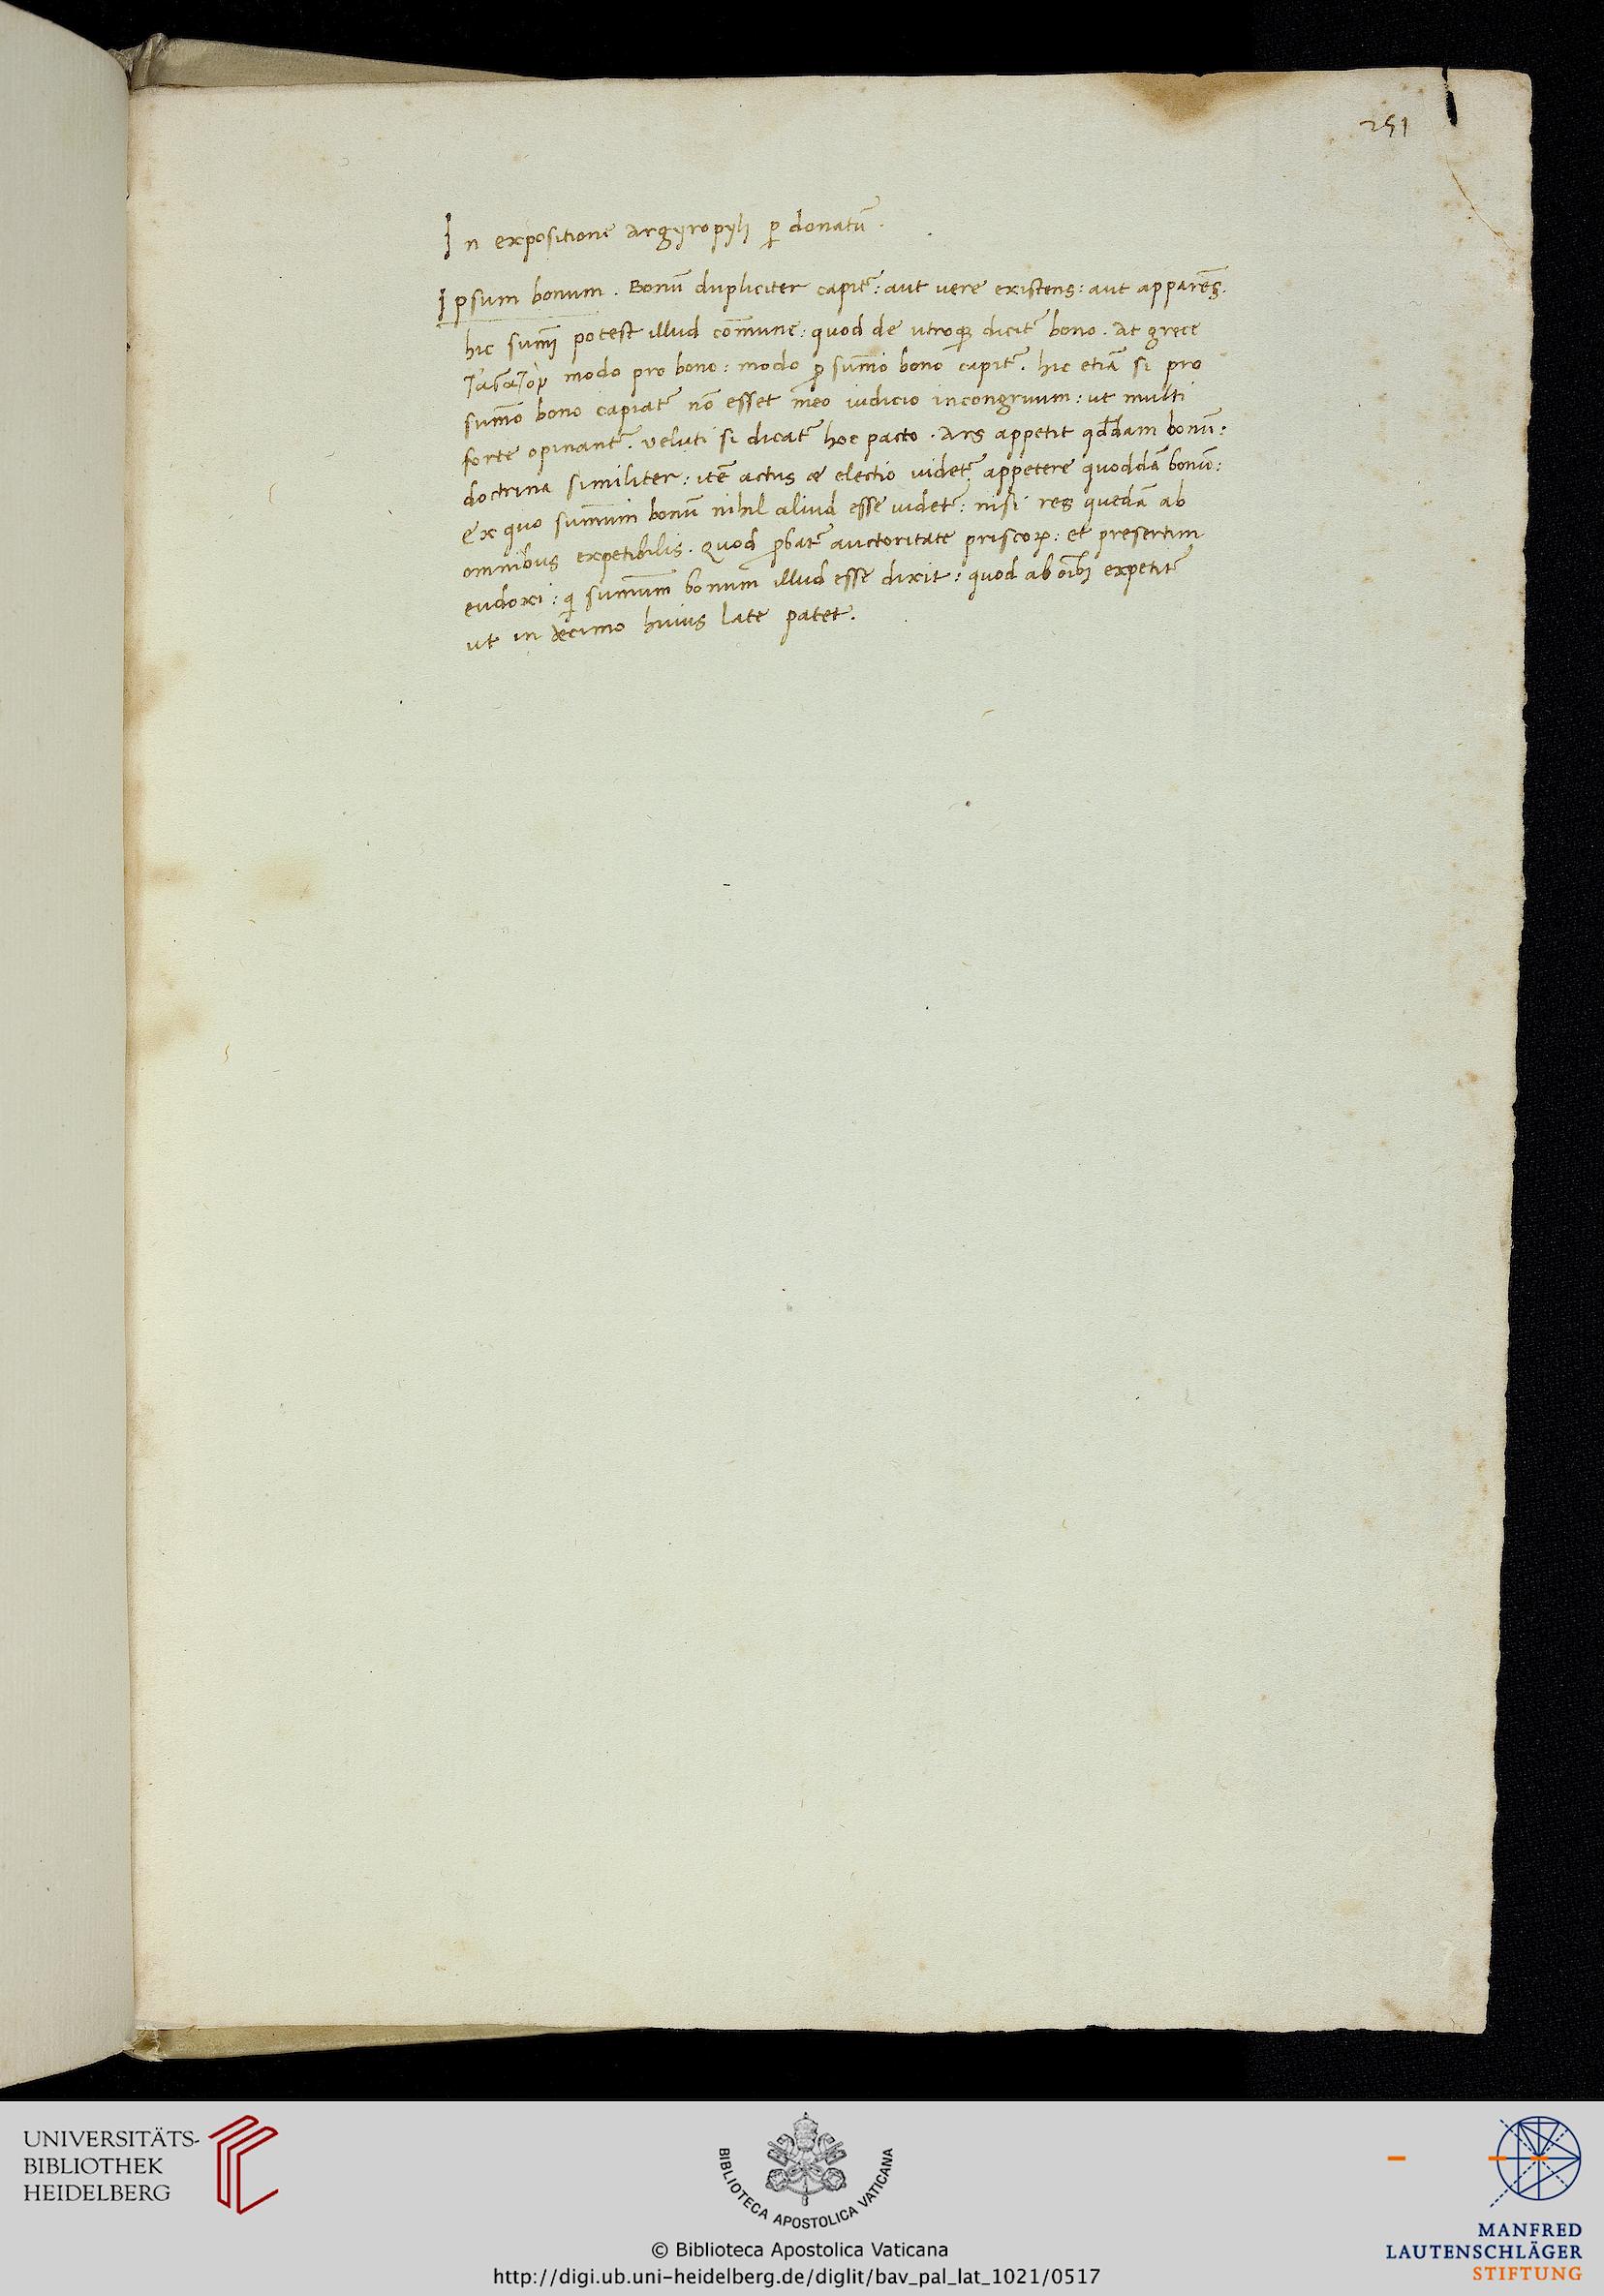 251
In expositione Argyropyli p donatū.
Ipsum bonum. Bonū dupliciter capit᷑: aut vere existens: aut apparēs.
hic sumi potest illud cōmune: quod de utroqꝫ dicit᷑ bono. At grece
τἀγαθὸν modo pro bono: modo ꝓ summo bono capit᷑. hic etiā si pro
summo bono capiat᷑ nō esset meo iudicio incongruum: ut multi
forte opinant᷑. veluti si dicat᷑ hoc pacto. Ars appetit qddam bonū:
doctrina similiter: itē actus & electio videt᷑ appetere quoddā bonū:
ex quo summum bonū nihil aliud esse videt᷑: nisi res quedā ab
omnibus expetibilis. Quod ꝓbat᷑ auctoritate priscoꝝ: et presertim
eudoxi: qi summum bonum illud esse dixit: quod ab oībꝫ expetit᷑
ut in decimo huius late patet.
UNIVERSITÄTS-
BIBLIOTHEK
HEIDELBERG
BIBLIOTECA APOSTOLICA VATICANA
© Biblioteca Apostolica Vaticana
http://digi.ub.uni-heidelberg.de/diglit/bav_pal_lat_1021/0517
MANFRED
LAUTENSCHLÄGER
STIFTUNG